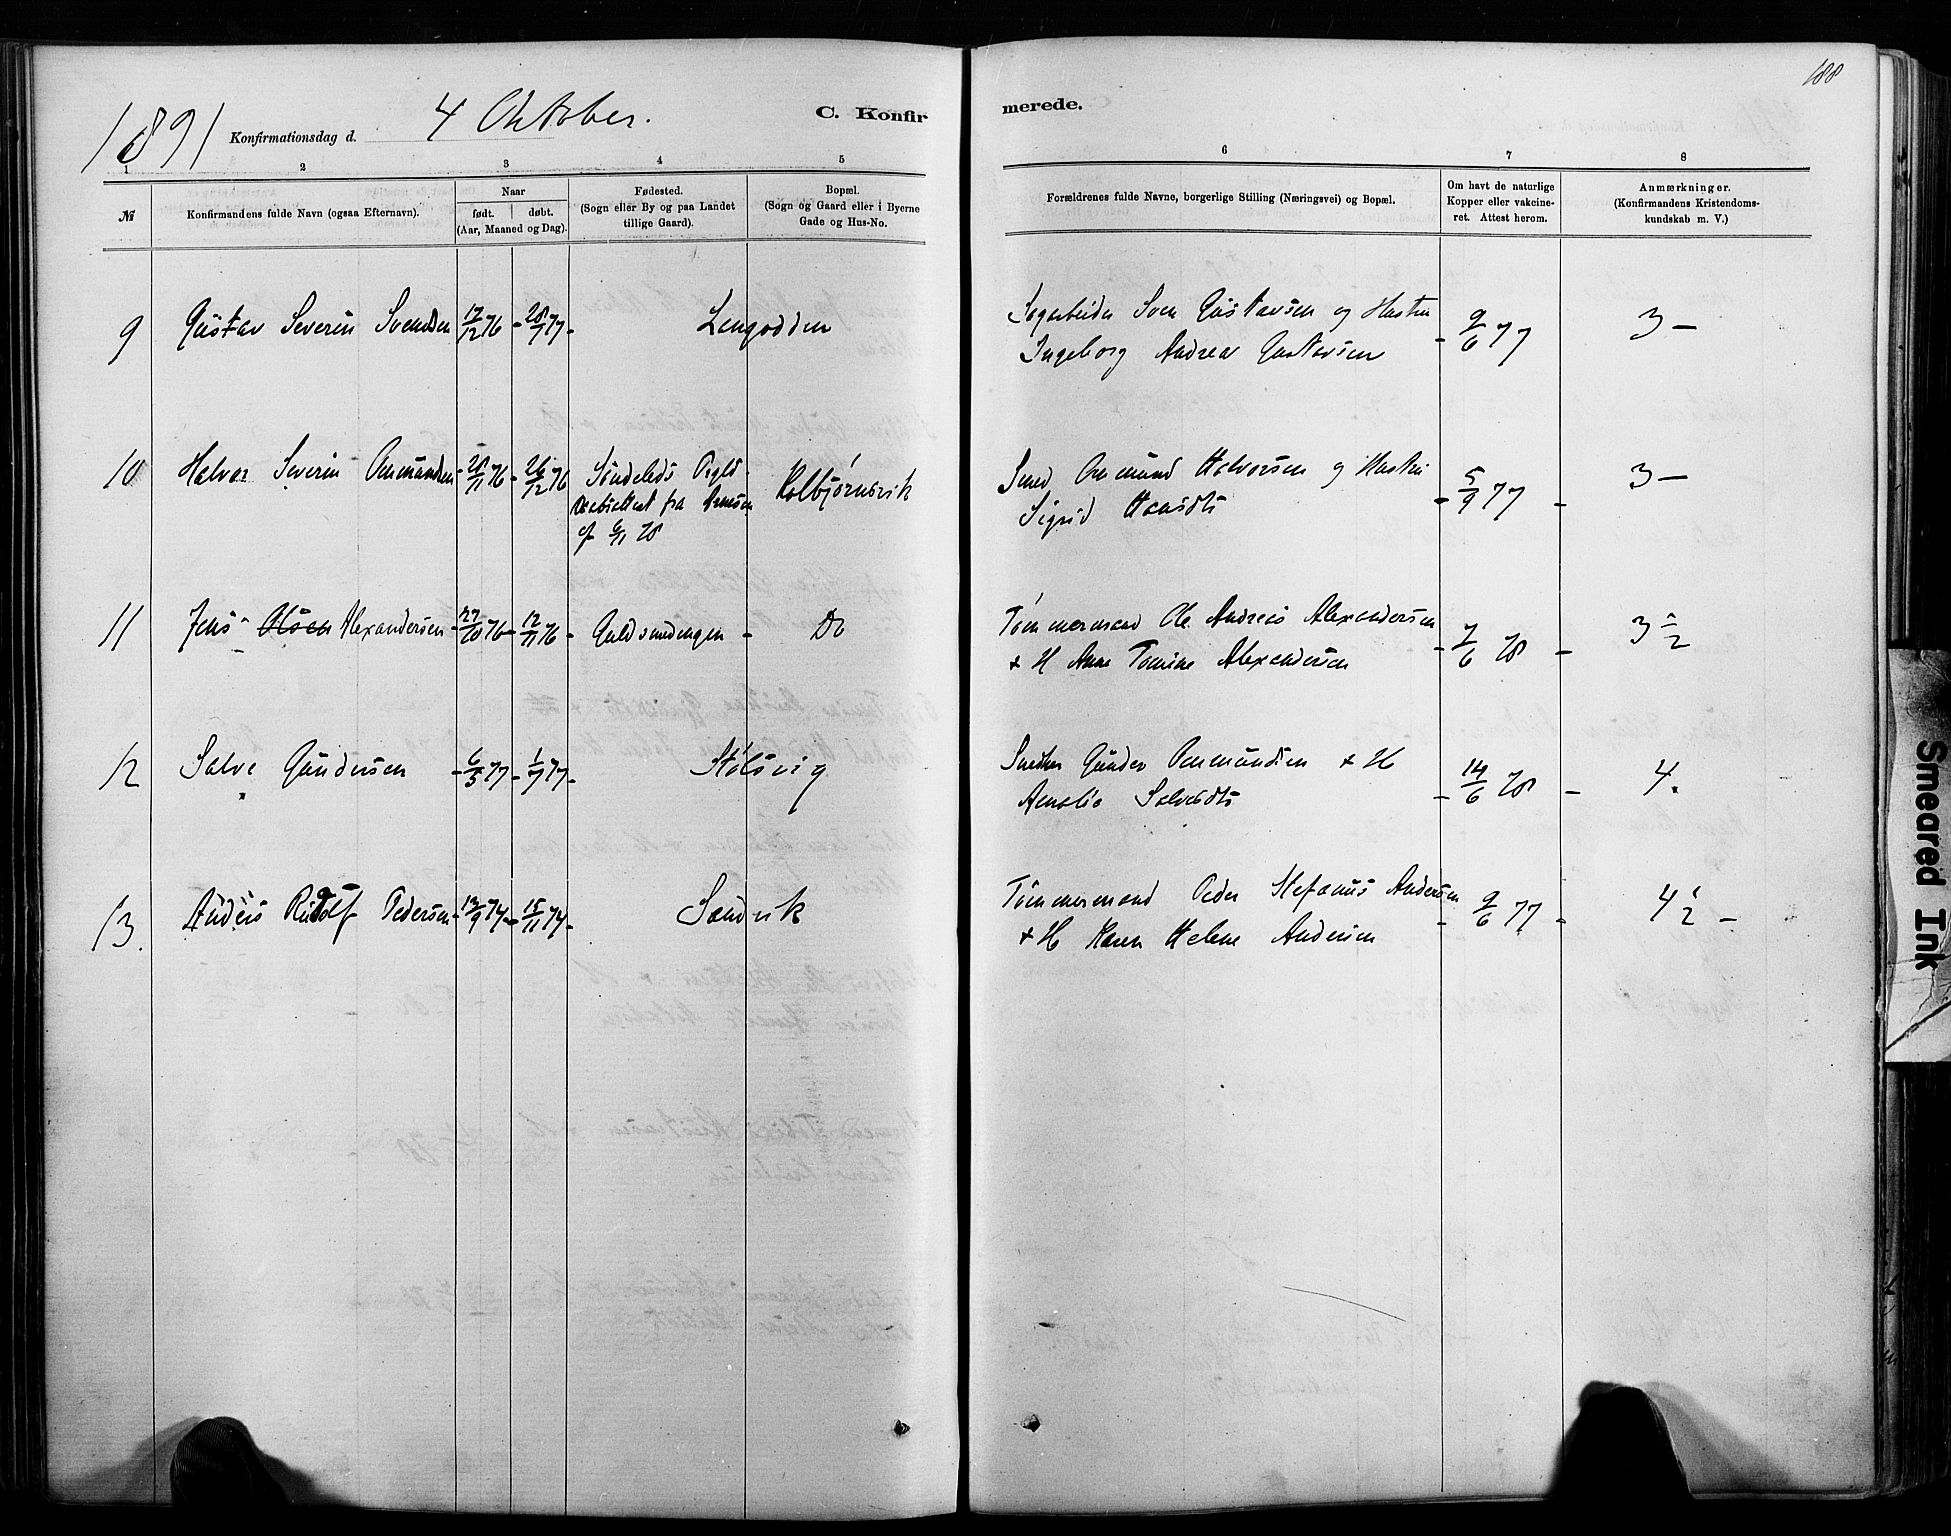 188
1891 Konfirmationsdag d. 4 Oktober. C. Konfir merede.
1 2 3 4 5 6 7 8
№ Konfirmandens fulde Navn (ogsaa Efternavn).
Naar
født. døbt.
(Aar, Maaned og Dag).
Fødested.
(Sogn eller By og paa Landet
tillige Gaard).
Bopæl.
(Sogn og Gaard eller i Byerne
Gade og Hus-No.
Forældrenes fulde Navne, borgerlige Stilling (Næringsvei) og Bopæl.
Om havt de naturlige
Kopper eller vakcine-
ret. Attest herom.
Anmærkninger.
(Konfirmandens Kristendoms-
kundskab m. V.)
9 Gustav Severin Svendsen 17/12 76 - 28/1 77 - Langodden
Sagarbeider Sven Gustavsen og Hustru
Ingeborg Andrea Gustavsen - 9/6 77 3 -
10 Halvor Severin Omundsen - 28/11 76 - 26/12 76 Søndeleds Prgld
fra
af 6/11 78
Kolbjørnsvik
Smed Omund Halvorsen og Hustru
Sigrid - 5/9 77 - 3 -
11 Jens Olsen Alexandersen - 27/10 76 - 12/11 76 - Guldsmedengen - Do
Tømmermand Ole Andreas Alexandersen
+ H Anne Tomine Alexandersen - 7/6 78 - 3 ½
12 Salve Gundersen - 6/5 77 - 1/7 77 - Stølsvig
Snedker Gunder Omundsen + H
Amalie Salvesdtr - 14/6 78 - 4.
13. Anders Rudolf Pedersen - 13/9 74 - 15/11 74 - Sandvik
Tømmermand Peder Stefanus Andersen
+ H Karen Helene Andersen - 9/6 77 - 4 ½ -
Smeared Ink